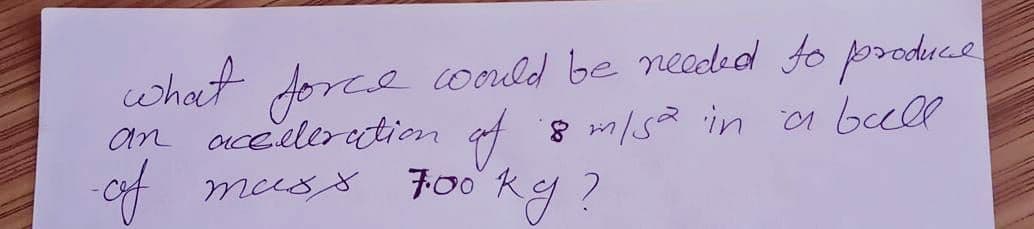 what force would be needed to produce
an acceleration of 8 m/s² in a ball
of mass 7.00 kg?